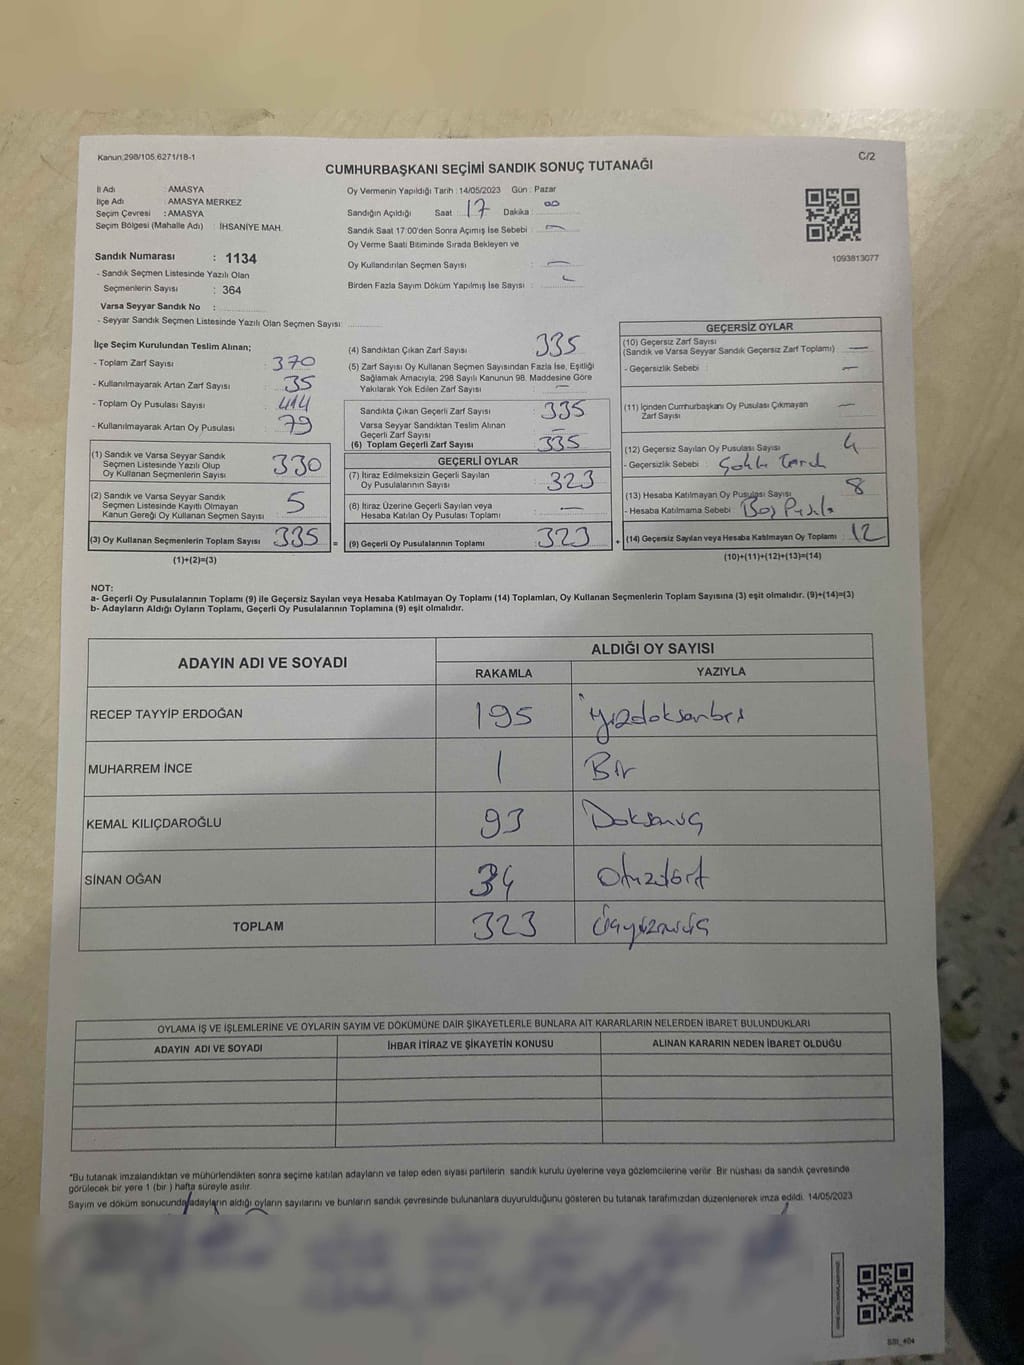 Kanun.298/105,6271/18-1
C/2
CUMHURBAŞKANI SEÇİMİ SANDIK SONUÇ TUTANAĞI
İl Adı : AMASYA
İlçe Adı : AMASYA MERKEZ
Seçim Çevresi : AMASYA
Seçim Bölgesi (Mahalle Adı) : İHSANİYE MAH.
Sandık Numarası : 1134
- Sandık Seçmen Listesinde Yazılı Olan
Seçmenlerin Sayısı : 364
Varsa Seyyar Sandık No :
- Seyyar Sandık Seçmen Listesinde Yazılı Olan Seçmen Sayısı:
Oy Vermenin Yapıldığı Tarih : 14/05/2023 Gün : Pazar
Sandığın Açıldığı Saat : 17 Dakika : 00
Sandık Saat 17:00'den Sonra Açımış İse Sebebi : —
Oy Verme Saati Bitiminde Sırada Bekleyen ve
Oy Kullandırılan Seçmen Sayısı : —
Birden Fazla Sayım Döküm Yapılmış İse Sayısı :
1093813077
İlçe Seçim Kurulundan Teslim Alınan;
- Toplam Zarf Sayısı : 370
- Kullanılmayarak Artan Zarf Sayısı : 35
- Toplam Oy Pusulası Sayısı : 414
- Kullanılmayarak Artan Oy Pusulası : 79
(1) Sandık ve Varsa Seyyar Sandık
Seçmen Listesinde Yazılı Olup
Oy Kullanan Seçmenlerin Sayısı : 330
(2) Sandık ve Varsa Seyyar Sandık
Seçmen Listesinde Kayıtlı Olmayan
Kanun Gereği Oy Kullanan Seçmen Sayısı : 5
(3) Oy Kullanan Seçmenlerin Toplam Sayısı : 335 =
(1)+(2)=(3)
(4) Sandıktan Çıkan Zarf Sayısı : 335
(5) Zarf Sayısı Oy Kullanan Seçmen Sayısından Fazla İse, Eşitliği
Sağlamak Amacıyla, 298 Sayılı Kanunun 98. Maddesine Göre
Yakılarak Yok Edilen Zarf Sayısı : —
Sandıkta Çıkan Geçerli Zarf Sayısı : 335
Varsa Seyyar Sandıktan Teslim Alınan
Geçerli Zarf Sayısı : —
(6) Toplam Geçerli Zarf Sayısı : 335
GEÇERLİ OYLAR
(7) İtiraz Edilmeksizin Geçerli Sayılan
Oy Pusulalarının Sayısı : 323
(8) İtiraz Üzerine Geçerli Sayılan veya
Hesaba Katılan Oy Pusulası Toplamı : —
(9) Geçerli Oy Pusulalarının Toplamı : 323 +
GEÇERSİZ OYLAR
(10) Geçersiz Zarf Sayısı
(Sandık ve Varsa Seyyar Sandık Geçersiz Zarf Toplamı) : —
- Geçersizlik Sebebi : —
(11) İçinden Cumhurbaşkanı Oy Pusulası Çıkmayan
Zarf Sayısı : —
(12) Geçersiz Sayılan Oy Pusulası Sayısı : 4
- Geçersizlik Sebebi :
(13) Hesaba Katılmayan Oy Pusulası Sayısı : 8
- Hesaba Katılmama Sebebi : Boş Pusula
(14) Geçersiz Sayılan veya Hesaba Katılmayan Oy Toplamı : 12
(10)+(11)+(12)+(13)=(14)
NOT:
a- Geçerli Oy Pusulalarının Toplamı (9) ile Geçersiz Sayılan veya Hesaba Katılmayan Oy Toplamı (14) Toplamları, Oy Kullanan Seçmenlerin Toplam Sayısına (3) eşit olmalıdır. (9)+(14)=(3)
b- Adayların Aldığı Oyların Toplamı, Geçerli Oy Pusulalarının Toplamına (9) eşit olmalıdır.
ADAYIN ADI VE SOYADI
ALDIĞI OY SAYISI
RAKAMLA YAZIYLA
RECEP TAYYİP ERDOĞAN 195 Yüzdoksanbeş
MUHARREM İNCE 1 Bir
KEMAL KILIÇDAROĞLU 93 Doksanüç
SİNAN OĞAN 34 Otuzdört
TOPLAM 323
OYLAMA İŞ VE İŞLEMLERİNE VE OYLARIN SAYIM VE DÖKÜMÜNE DAİR ŞİKAYETLERLE BUNLARA AİT KARARLARIN NELERDEN İBARET BULUNDUKLARI
ADAYIN ADI VE SOYADI İHBAR İTİRAZ VE ŞİKAYETİN KONUSU ALINAN KARARIN NEDEN İBARET OLDUĞU
*Bu tutanak imzalandıktan ve mühürlendikten sonra seçime katılan adayların ve talep eden siyasi partilerin sandık kurulu üyelerine veya gözlemcilerine verilir. Bir nüshası da sandık çevresinde
görülecek bir yere 1 (bir ) hafta süreyle asılır.
Sayım ve döküm sonucunda adayların aldığı oyların sayılarını ve bunların sandık çevresinde bulunanlara duyurulduğunu gösteren bu tutanak tarafımızdan düzenlenerek imza edildi. 14/05/2023